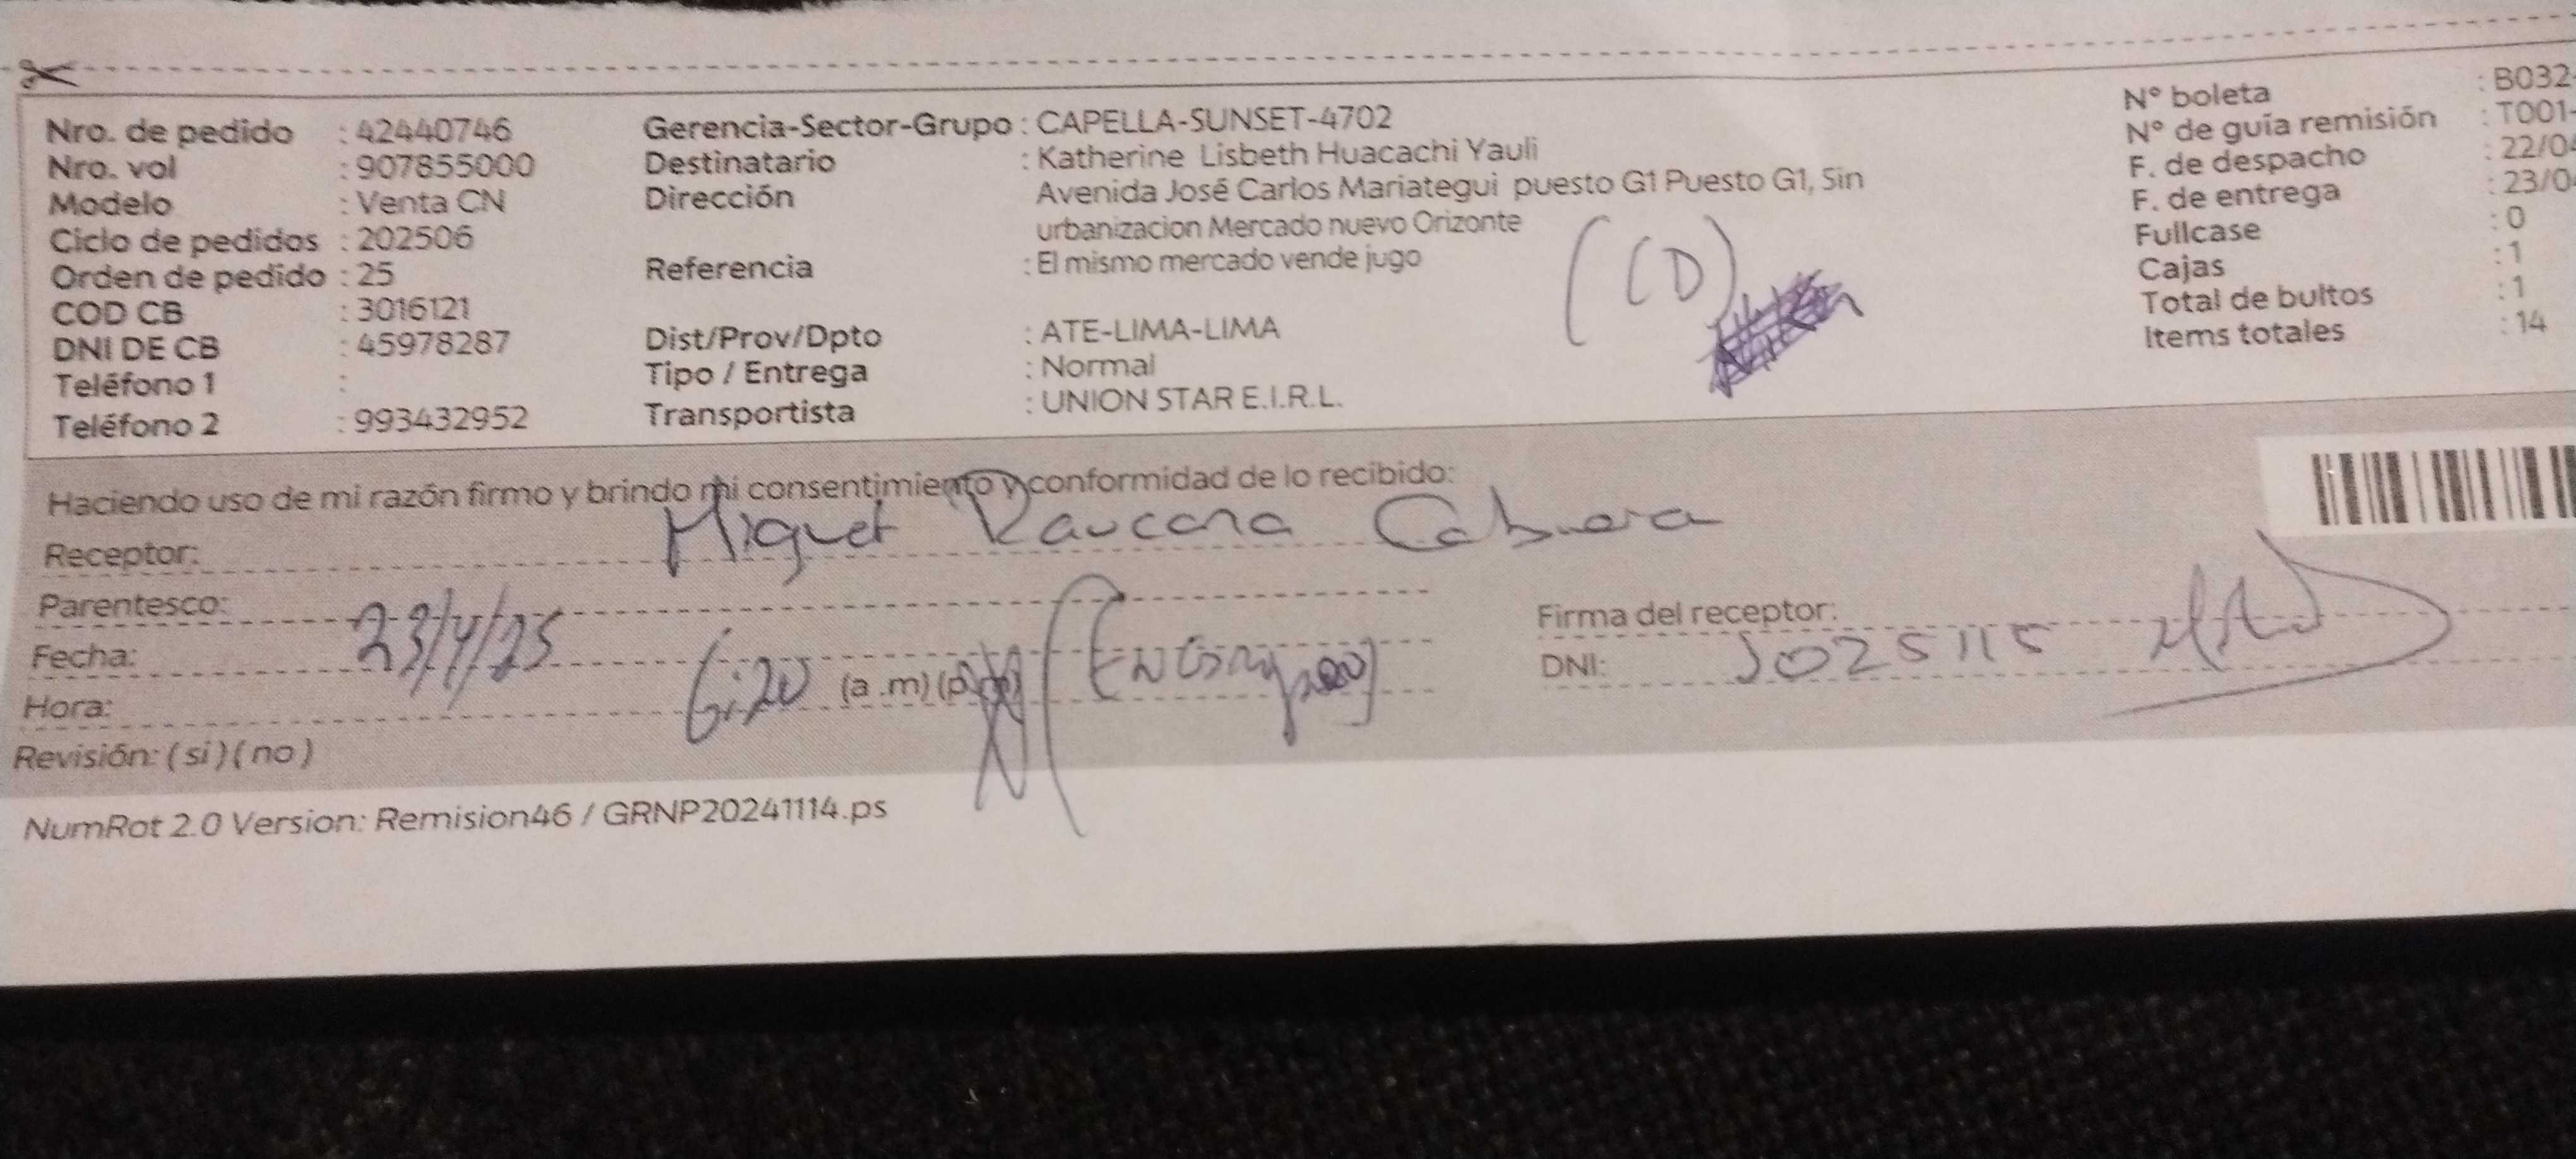 Nro. de pedido : 42440746
Nro. vol : 907855000
Modelo : Venta CN
Ciclo de pedidos : 202506
Orden de pedido : 25
COD CB : 3016121
DNI DE CB : 45978287
Teléfono 1 :
Teléfono 2 : 993432952
Gerencia-Sector-Grupo : CAPELLA-SUNSET-4702
Destinatario : Katherine Lisbeth Huacachi Yauli
Dirección Avenida José Carlos Mariategui puesto G1 Puesto G1, Sin
urbanizacion Mercado nuevo Orizonte
Referencia : El mismo mercado vende jugo
Dist/Prov/Dpto : ATE-LIMA-LIMA
Tipo / Entrega : Normal
Transportista : UNION STAR E.I.R.L.
(CD)
N° boleta : B032-
N° de guía remisión : T001-
F. de despacho : 22/04
F. de entrega : 23/04
Fullcase : 0
Cajas : 1
Total de bultos : 1
Items totales : 14
Haciendo uso de mi razón firmo y brindo mi consentimiento y conformidad de lo recibido:
Receptor: Miguel Cabrera
Parentesco:
Fecha: 23/4/25
Hora: 6:20 (a .m) (p.m)
Revisión: ( si ) ( no )
Firma del receptor:
DNI:
NumRot 2.0 Version: Remision46 / GRNP20241114.ps